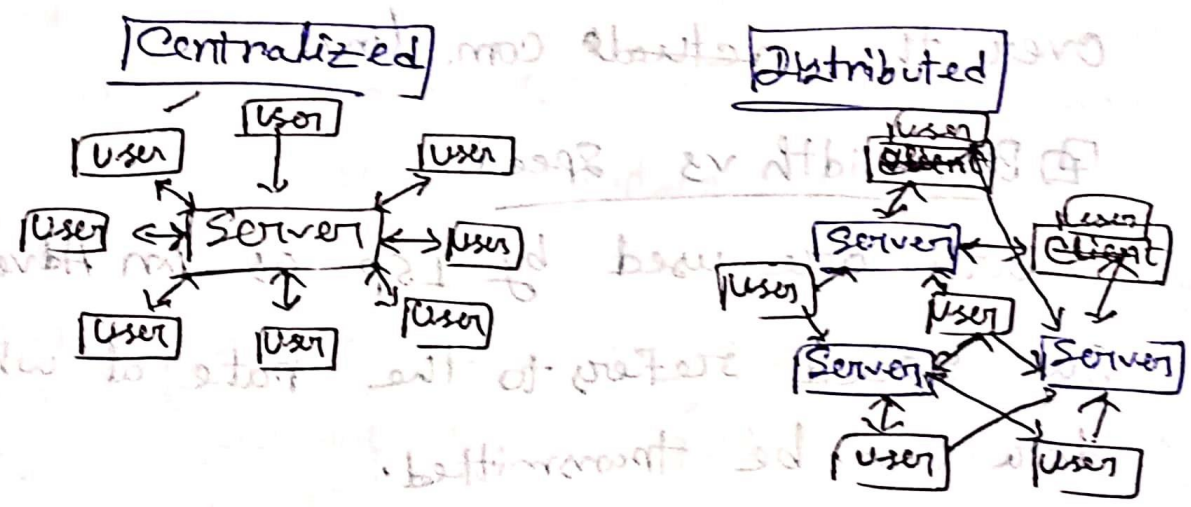 Centralized
User
User
User
User
Server
User
User
User
User
Distributed
User
Client
Server
User
Client
User
User
Server
Server
User
User